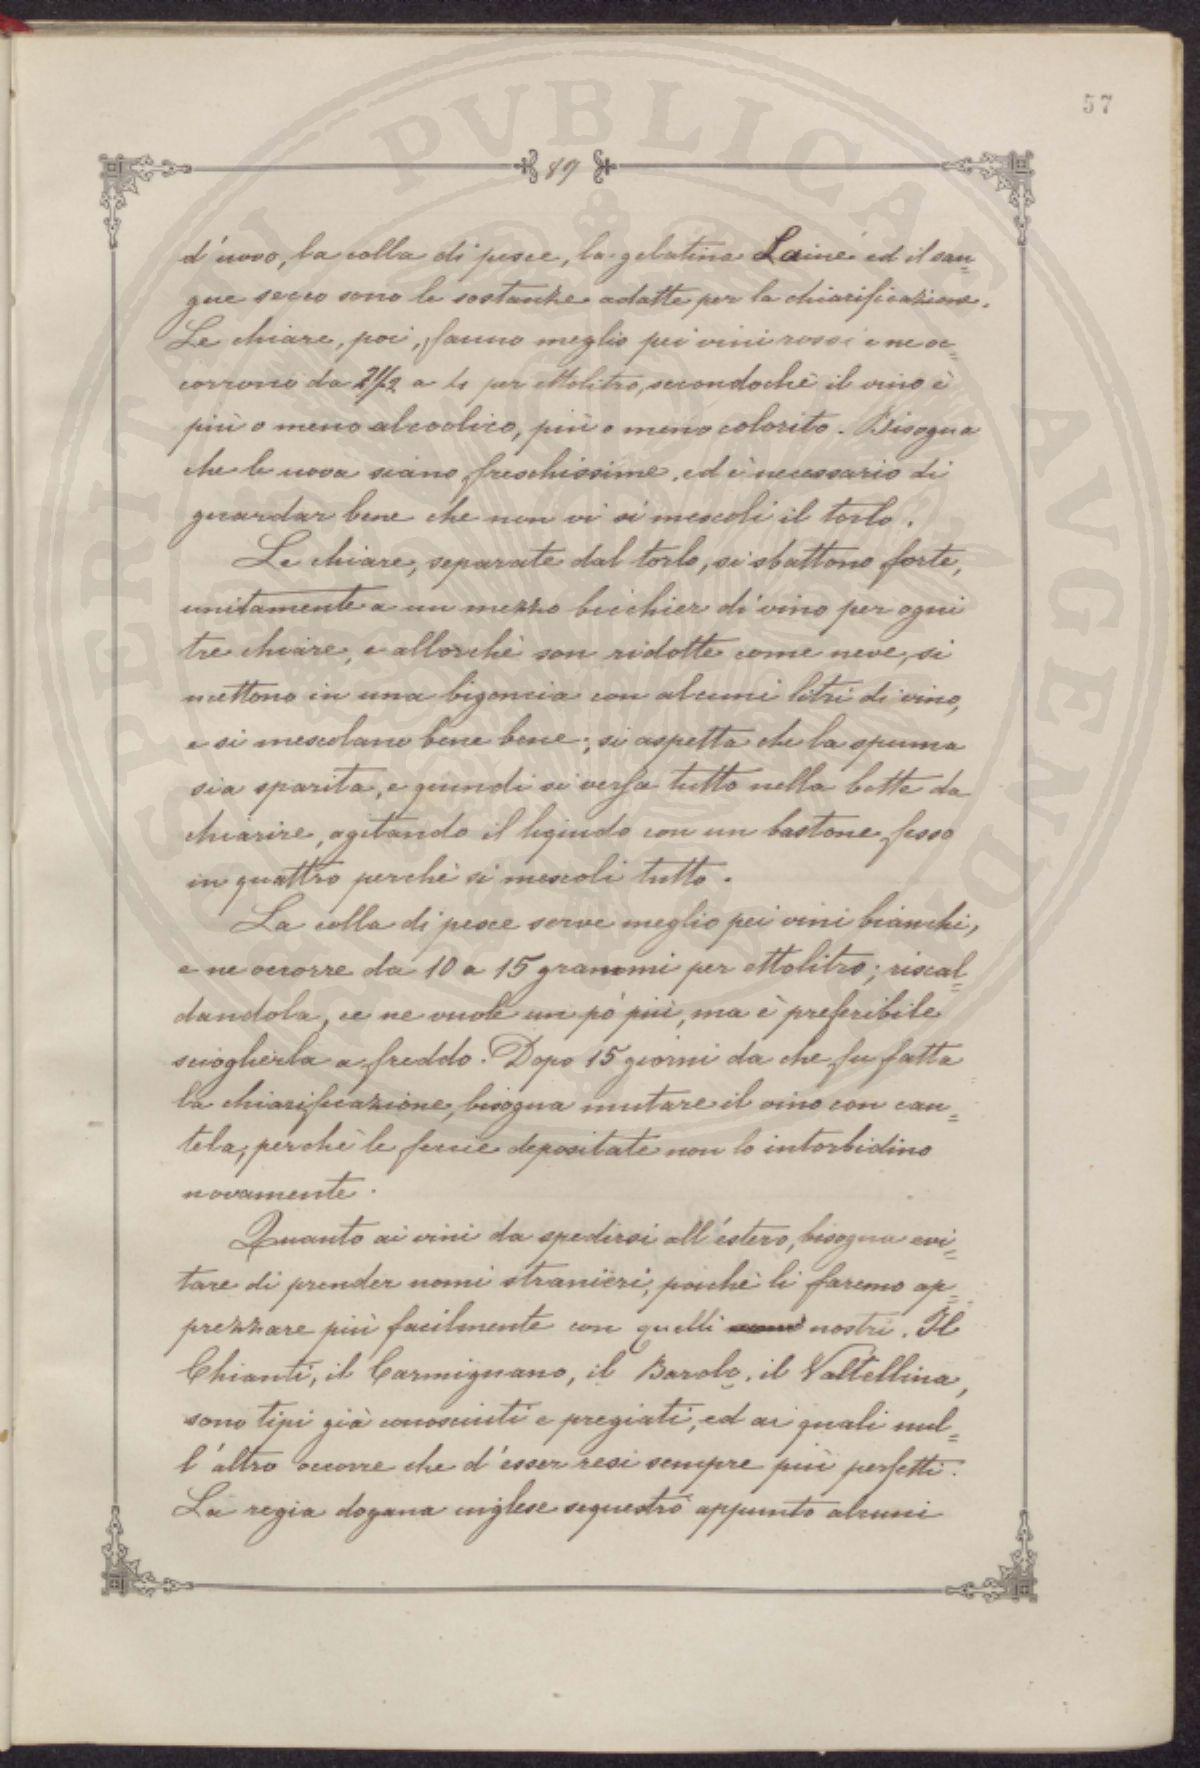 57
89
d'uovo, la colla di pesce, la gelatina Lainé ed il san=
gue secco sono le sostanze adatte per la chiarificazione.
Le chiare, poi, fanno meglio pei vini rossi e ne oc=
corrono da 2 1/2 a 4 per ettolitro, secondochè il vino è
più o meno alcoolico, più o meno colorito. Bisogna
che le uova siano freschissime, ed è necessario di
guardar bene che non vi si mescoli il torlo.
Le chiare, separate dal torlo, si sbattono forte,
unitamente a un mezzo bicchier di vino per ogni
tre chiare, e allorchè son ridotte come neve, si
mettono in una bigoncia con alcuni litri di vino,
e si mescolano bene bene; si aspetta che la spuma
sia sparita, e quindi si versa tutto nella botte da
chiarire, agitando il liquido con un bastone fesso
in quattro perchè si mescoli tutto.
La colla di pesce serve meglio pei vini bianchi,
e ne occorre da 10 a 15 grammi per ettolitro; riscal=
dandola, ce ne vuole un pò più, ma è preferibile
scioglierla a freddo. Dopo 15 giorni da che fu fatta
la chiarificazione, bisogna mutare il vino con cau=
tela, perchè le feccie depositate non lo intorbidino
novamente.
Quanto ai vini da spedirsi all'estero, bisogna evi=
tare di prender nomi stranieri, poichè li faremo ap=
prezzare più facilmente con quelli nostri. Il
Chianti, il Carmignano, il Barolo, il Valtellina,
sono tipi già conosciuti e pregiati, ed ai quali nul=
l'altro occorre che d'esser resi sempre più perfetti.
La regia dogana inglese sequestrò appunto alcuni